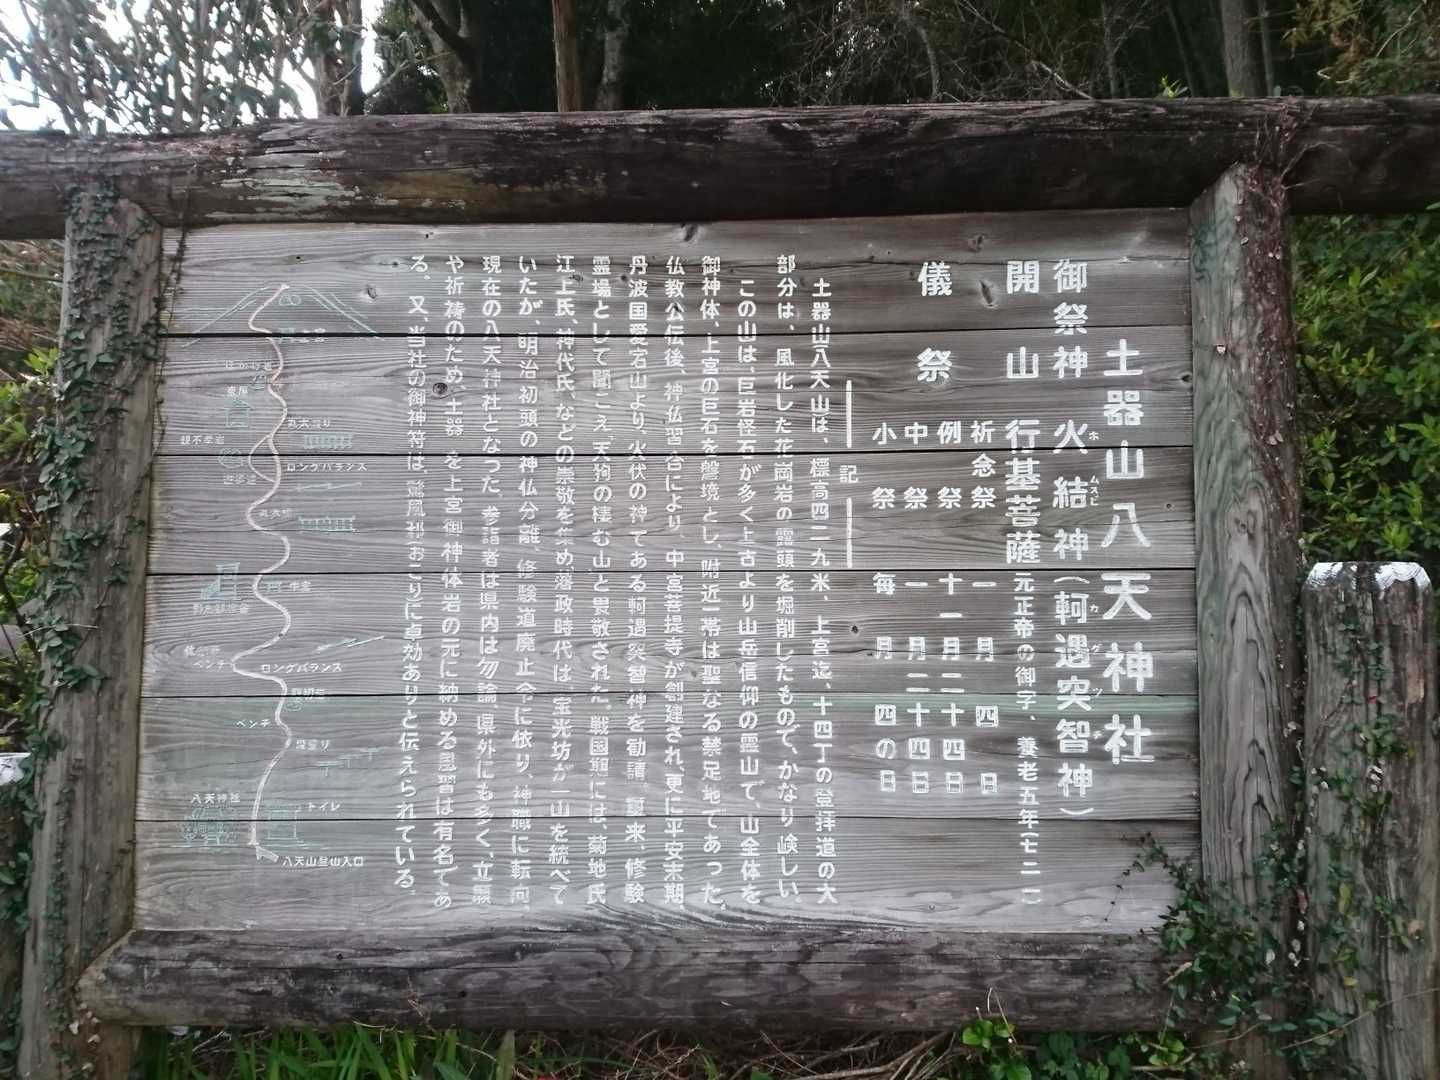 土器山八天神社
御祭神 火結神(軻遇突智神)
ホ ムスビ カグツチ
開山 行基菩薩 元正帝の御字、養老五年(七二一)
儀祭
祈念祭 一月四日
例祭 十一月二十四日
中祭 一月二十四日
小祭 毎月四の日
記
土器山(八天山)は、標高四二九米、上宮迄、十四丁の登拝道の大
部分は、風化した花崗岩の露頭を堀削したもので、かなり険しい。
この山は、巨岩怪石が多く上古より山岳信仰の霊山で、山全体を
御神体、上宮の巨石を磐境とし、附近一帯は聖なる禁足地であった。
仏教公伝後、神仏習合により、中宮菩提寺が創建され、更に平安末期
丹波国愛宕山より、火伏の神である軻遇突智神を勧請、夏来、修験
霊場として聞こえ、天狗の棲む山と畏敬された。戦国期には、菊地氏
江上氏、神代氏、などの崇敬を集め、藩政時代は、宝光坊が一山を統べて
いたが、明治初頭の神仏分離、修験道廃止令に依り、神職に転向、
現在の八天神社となった。参詣者は県内は勿論、県外にも多く、立願
や祈祷のため、土器を上宮御神体岩の元に納める風習は有名であ
る。又、当社の御神符は、驚風邪おこりに卓効ありと伝えられている。
上宮
ぼかけ岩
東屋
丸太渡り
親不孝岩
ロングバランス
遊歩道
中宮
野鳥観察舎
ベンチ
ロングバランス
展望台
ベンチ
八天神社
トイレ
八天山登山入口